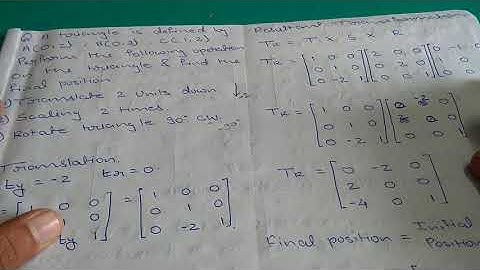 Q. A triangle is defined by
A(0,2), B(0,3), C(1,2)
Perform the following operation
on the triangle & find the
final position
Translate 2 Units down
Scaling 2 times.
Rotate triangle 90° CW. -90°
Translation.
ty = -2 tx = 0
= [1 0 0 = [1 0 0
1 0 0 1 0
ty 1] 0 -2 1]
Resultant Transformation
TR = T x S x R
TR = [1 0 0 [2 0 0 [0 -1 0
0 1 0 0 2 0
0 -2 1] 0 0 1]
TR = [1 0 0
0 1 0
0 -2 1]
TR = [0 -2 0
2 0 0
-4 0 1]
Final position = Initial
Position